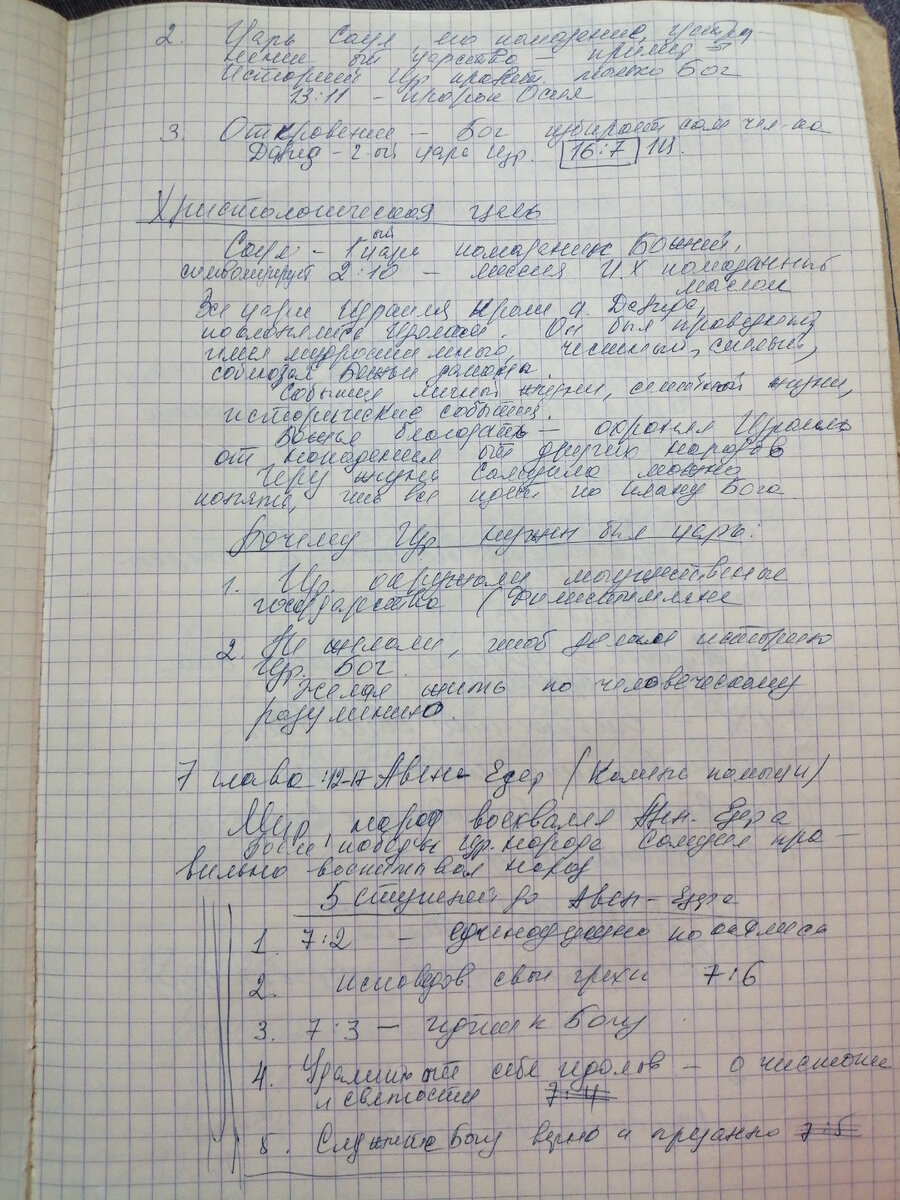 2. Царь Саул, его помазание, устра-
нение от царства — пример
Историей Изр. правит только Бог
13:11 – пророк Осия
3. Откровение – Бог избирает сам чел-ка
Давид – 2-ой царь Изр. 16:7 1Ц.
Христологическая цель
Саул – 1ый царь помазанник Божий,
символизирует 2:10 – миссия ИХ помазанный
маслом
Все цари Израиля кроме ц. Давида,
поклонялись идолам. Он был праведный
имел мудрости много, честный, сильный,
соблюдал Божьи законы.
События личной жизни, семейной жизни,
исторические события.
Божья благодать – охраняла Израиль
от нападения от других народов
Через жизнь Самуила можно
понять, что все идет по плану Бога
Почему Изр. нужен был царь:
1. Изр. окружали могущественные
государства (Филистимляне
2. Не желали, чтоб делал историю
Изр. Бог.
Желая жить по человеческому
разумению.
7 глава :12-17 Авен-Езер (Камень помощи)
Мир, народ восхвалял Авен-Езера
После победы Изр. народа Самуил пра-
вильно воспитывал народ
5 ступеней до Авен-Езера
1. 7:2 – единодушно
2. исповедов свои грехи 7:6
3. 7:3 – идти к Богу
4. Удалить от себя идолов – о чистоте
и святости 7:4
5. Служить Богу верно и преданно 7:5